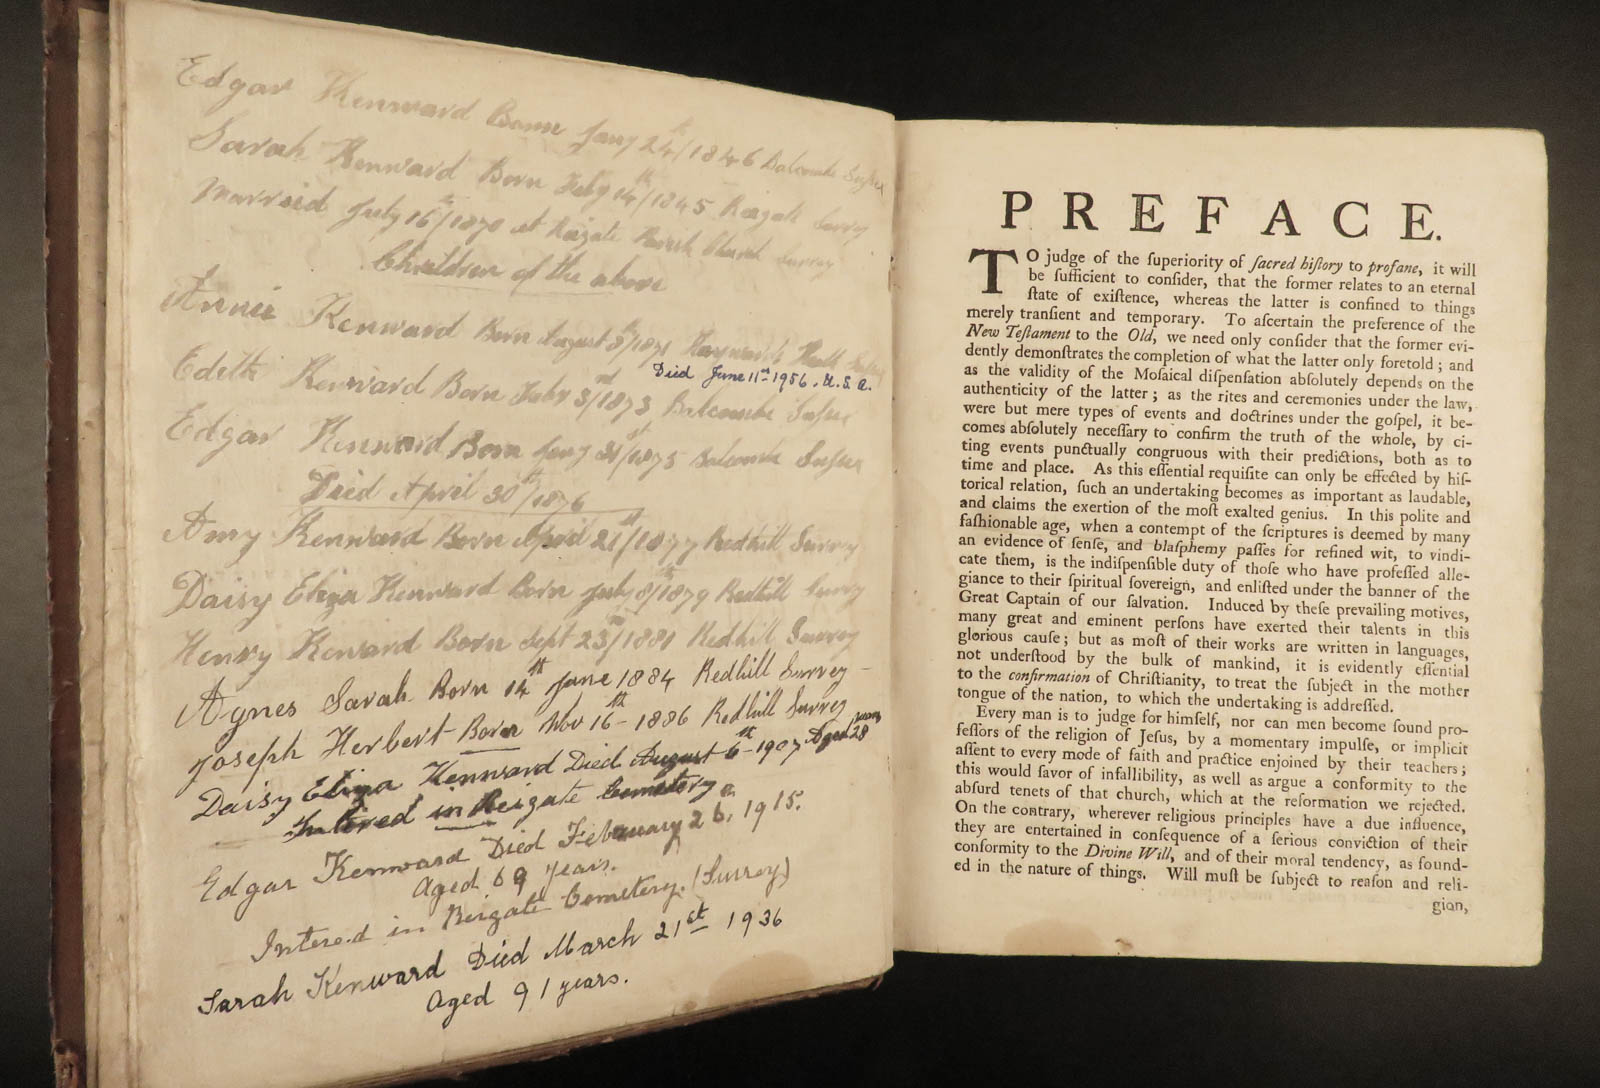 Edgar Kenward Born Jany 24th/1846 Balcombe Sussex
Sarah Kenward Born Feby 14th/1845 Reigate Surrey
Married July 16th/1870 at Reigate Parish Church Surrey
Children of the above
Annie Kenward Born August 8th/1871 Haywards Heath Sussex
Died June 11th 1956. U.S.A.
Edith Kenward Born Febr 3rd/1873 Balcombe Sussex
Edgar Kenward Born Jany 31st/1875 Balcombe Sussex
Died April 30th/1876
Amy Kenward Born April 21st/1877 Redhill Surrey
Daisy Eliza Kenward Born July 8th/1879 Redhill Surrey
Henry Kenward Born Sept 23rd/1881 Redhill Surrey
Agnes Sarah Born 14th June 1884 Redhill Surrey
Joseph Herbert Born Nov 16th 1886 Redhill Surrey
Daisy Eliza Kenward Died August 6th 1907 Aged 28 years
Intered in Reigate Cemetery
Edgar Kenward Died February 26, 1915.
Aged 69 years.
Intered in Reigate Cemetery. (Surrey)
Sarah Kenward Died March 21st 1936
Aged 91 years.
PREFACE.
TO judge of the ſuperiority of ſacred hiſtory to profane, it will
be ſufficient to conſider, that the former relates to an eternal
ſtate of exiſtence, whereas the latter is confined to things
merely tranſient and temporary. To aſcertain the preference of the
New Teſtament to the Old, we need only conſider that the former evi-
dently demonſtrates the completion of what the latter only foretold; and
as the validity of the Moſaical diſpenſation abſolutely depends on the
authenticity of the latter; as the rites and ceremonies under the law,
were but mere types of events and doctrines under the goſpel, it be-
comes abſolutely neceſſary to confirm the truth of the whole, by ci-
ting events punctually congruous with their predictions, both as to
time and place. As this eſſential requiſite can only be effected by hiſ-
torical relation, ſuch an undertaking becomes as important as laudable,
and claims the exertion of the moſt exalted genius. In this polite and
faſhionable age, when a contempt of the ſcriptures is deemed by many
an evidence of ſenſe, and blaſphemy paſſes for refined wit, to vindi-
cate them, is the indiſpenſible duty of thoſe who have profeſſed alle-
giance to their ſpiritual ſovereign, and enliſted under the banner of the
Great Captain of our ſalvation. Induced by theſe prevailing motives,
many great and eminent perſons have exerted their talents in this
glorious cauſe; but as moſt of their works are written in languages,
not underſtood by the bulk of mankind, it is evidently eſſential
to the confirmation of Chriſtianity, to treat the ſubject in the mother
tongue of the nation, to which the undertaking is addreſſed.
Every man is to judge for himſelf, nor can men become ſound pro-
feſſors of the religion of Jeſus, by a momentary impulſe, or implicit
aſſent to every mode of faith and practice enjoined by their teachers;
this would ſavor of infallibility, as well as argue a conformity to the
abſurd tenets of that church, which at the reformation we rejected.
On the contrary, wherever religious principles have a due influence,
they are entertained in conſequence of a ſerious conviction of their
conformity to the Divine Will, and of their moral tendency, as found-
ed in the nature of things. Will muſt be ſubject to reaſon and reli-
gion,